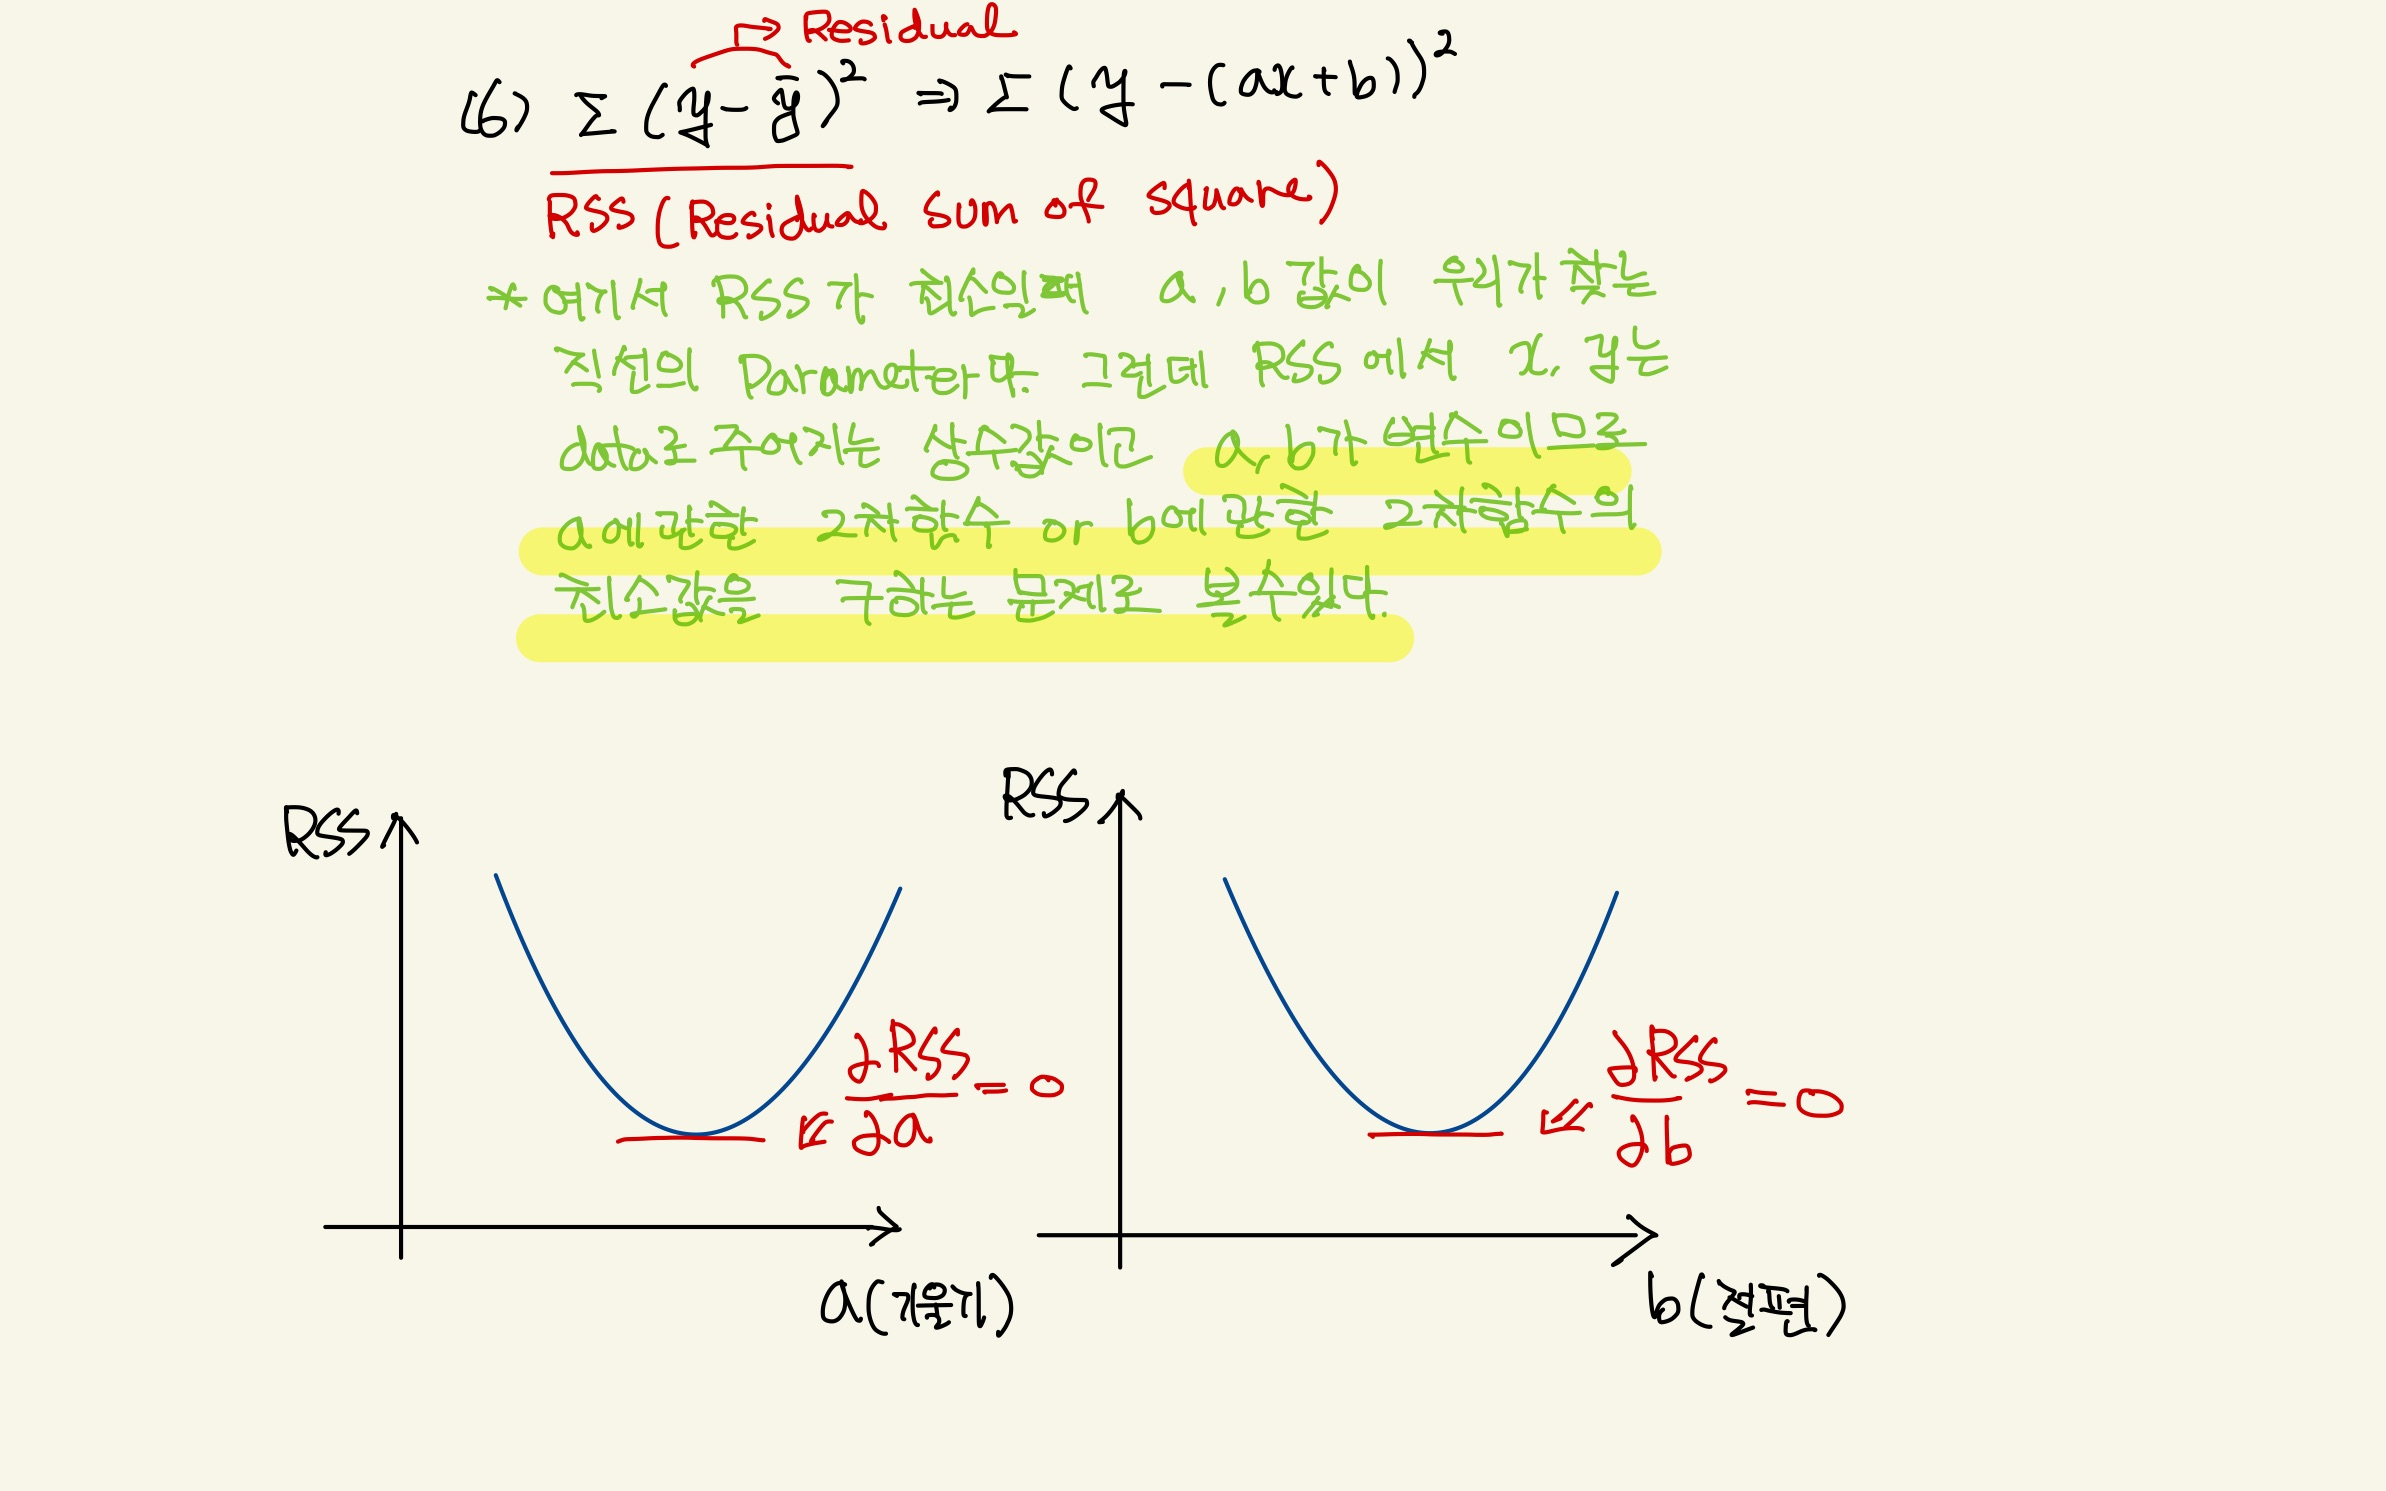 Residual
(6) Σ (y - ȳ)² ⇒ Σ (y - (ax+b))²
RSS (Residual sum of square)
* 여기서 RSS가 최소일때 a, b 값이 우리가 찾는
직선의 Parameter다. 그런데 RSS에서 x, y는
data로 주어지는 상수값이고 a, b가 변수이므로
a에 관한 2차함수 or b에 관한 2차함수의
최소값을 구하는 문제로 볼 수 있다.
RSS
RSS
∂RSS/∂a = 0
∂RSS/∂b = 0
a(기울기)
b(절편)